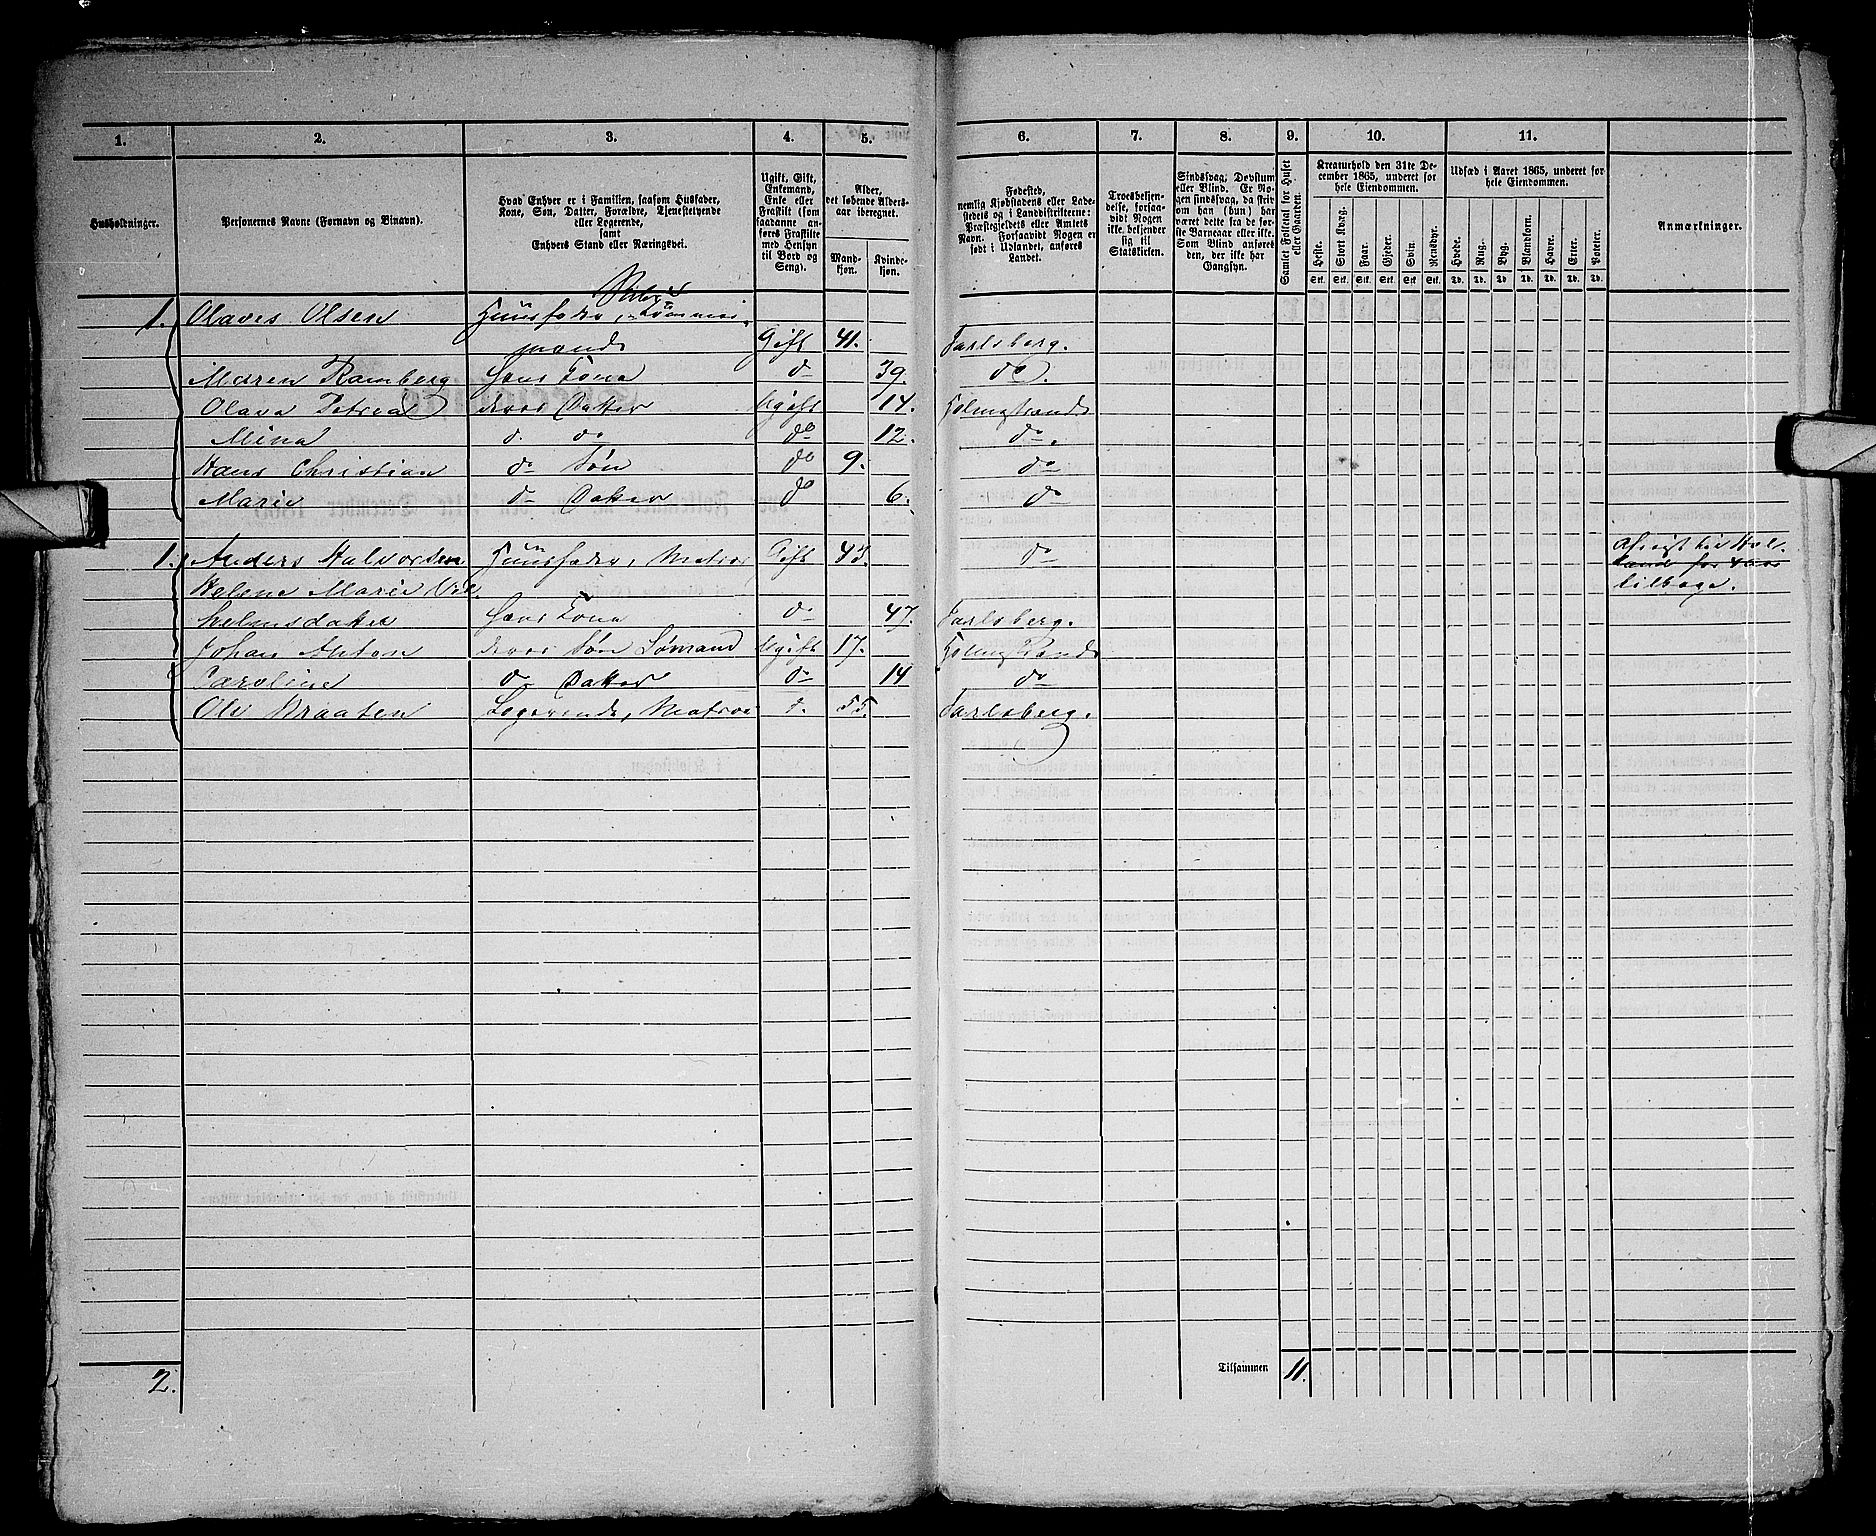 1. 2. 3. 4. 5. 6. 7. 8. 9. 10. 11.
Husholdninger.
Personernes Navne (Fornavn og Binavn).
Hvad Enhver er i Familien, saasom Husfader,
Kone, Søn, Datter, Forældre, Tjenestetyende
eller Logerende,
samt
Enhvers Stand eller Næringsvei.
Ugift, Gift,
Enkemand,
Enke eller
Fraskilt (som
saadanne an-
føres Fraskilte
med Hensyn
til Bord og
Seng).
Alder,
det løbende Alders-
aar iberegnet.
Mand-
kjøn.
Kvinde-
kjøn.
Fødested,
nemlig Kjøbstadens eller Lade-
stedets og i Landdistrikterne:
Præstegjeldets eller Amtets
Navn. Forsaavidt Nogen er
født i Udlandet, anføres
Landet.
Troesbekjen-
delse, forsaa-
vidt Nogen
ikke bekjender
sig til
Statskirken.
Sindssvag, Døvstum
eller Blind. Er No-
gen sindssvag, da skriv
om han (hun) har
været dette fra de før-
ste Barneaar eller ikke.
Som Blind anføres
den, der ikke har
Gangsyn.
Samlet Folketal for Huset
eller Gaarden.
Kreaturhold den 31te De-
cember 1865, underet for
hele Eiendommen.
Heste. Stort Kvæg. Faar. Gjeder. Svin. Rensdyr.
Stk. Stk. Stk. Stk. Stk. Stk.
Udsæd i Aaret 1865, underet for
hele Eiendommen.
Hvede. Rug. Byg. Blandkorn. Havre. Erter. Poteter.
Td. Td. Td. Td. Td. Td. Td.
Anmærkninger.
1. Olaves Olsen Huusfader, Tømmer-
mand Gift 41. Jarlsberg.
Maren Ramberg Hans Kone do 39. do.
Olava Petrea deres Datter Ugift 14. Holmestrand
Mina d. do do 12. do.
Hans Christian do Søn do 9. do
Marie do Datter do 6. do
1. Anders Halvorsen Huusfader, Matros Gift 43. do Afreist til Hol-
land for 4
Helene Marie Vil- tilbage.
helmsdatter Hans Kone do 47. Jarlsberg.
Johan Anton deres Søn Sømand Ugift 17. Holmestrand
Caroline do Datter do 14 do
Ole Braaten Logerende, Matros d. 55. Jarlsberg.
2. Tilsammen 11.